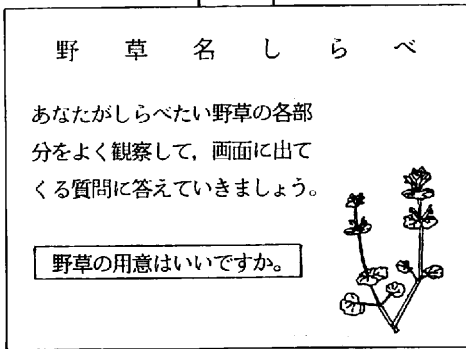 野草名しらべ
あなたがしらべたい野草の各部
分をよく観察して，画面に出て
くる質問に答えていきましょう。
野草の用意はいいですか。